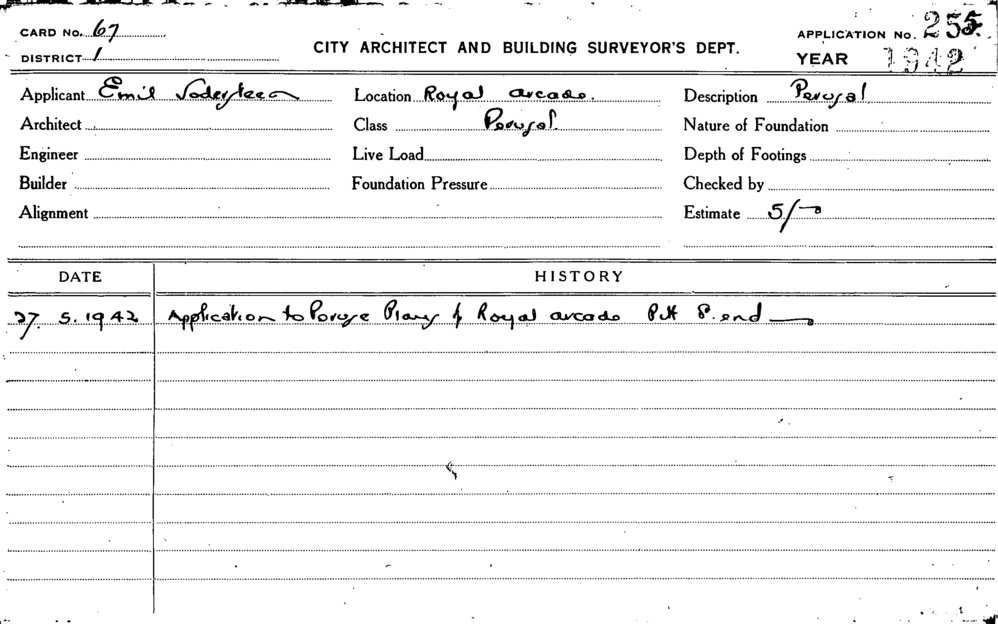 CARD No. 67
DISTRICT 1
CITY ARCHITECT AND BUILDING SURVEYOR'S DEPT.
APPLICATION No. 255.
YEAR 1942
Applicant Emil Sodersteen
Location Royal arcade.
Description Perusal
Architect
Class Perusal
Nature of Foundation
Engineer
Live Load
Depth of Footings
Builder
Foundation Pressure
Checked by
Alignment
Estimate 5/-
DATE HISTORY
27. 5. 1942 Application to Peruse Plans of Royal arcade Pitt St. end